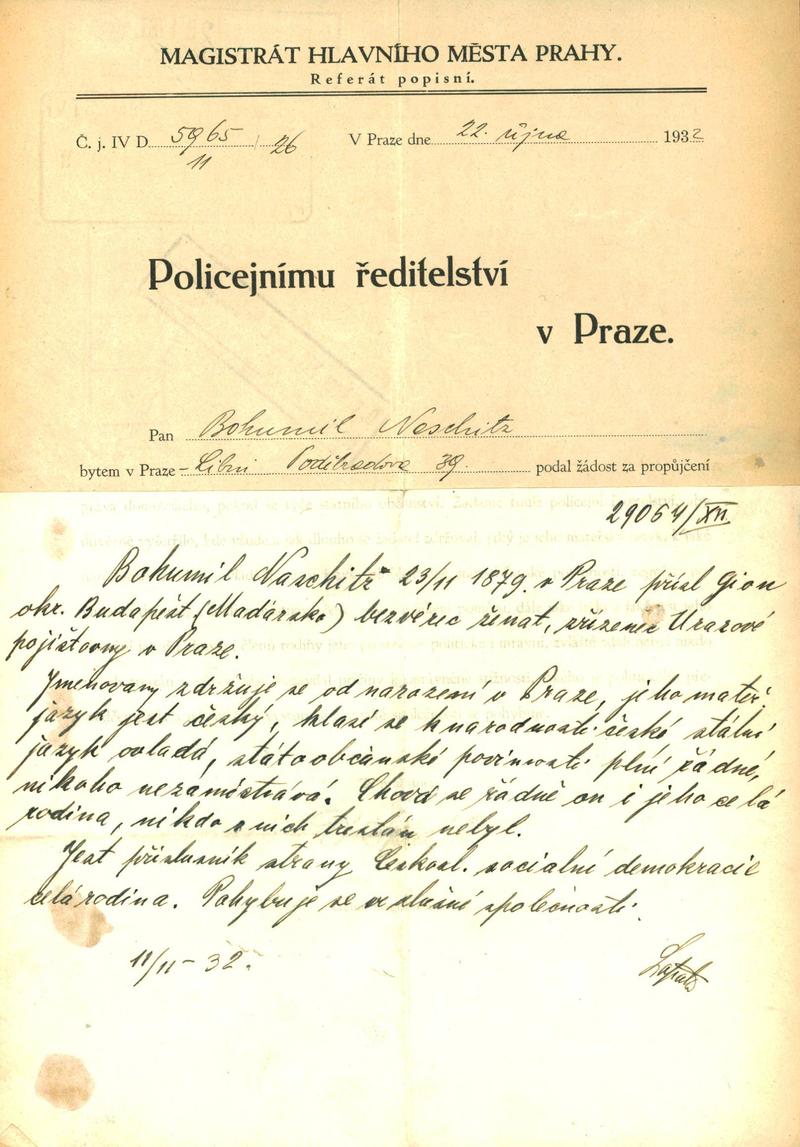 MAGISTRÁT HLAVNÍHO MĚSTA PRAHY.
Referát popisní.
Č. j. IV D. 5965/11 / 26 V Praze dne 22. října 1932
Policejnímu ředitelství
v Praze.
Pan Bohumil Naschitz
bytem v Praze - Libni Poděbradova 39. podal žádost za propůjčení
29064/XII.
Bohumil Naschitz 23/11 1879. v Praze přísl Gion
okr. Budapešt (Maďarsko) bezvěrec ženat, zřízenec Úrazové
pojišťovny v Praze.
Jmenovaný zdržuje se od narození v Praze, jeho mateř.
jazyk jest český, hlásí se k národnosti české státní
jazyk ovládá, státoobčanské povinnosti plní řádně,
nikoho nezaměstnává. Chová se řádně on i jeho celá
rodina, nikdo z nich trestán nebyl.
Jest příslušník strany Českosl. sociální demokracie
celá rodina. Pohybuje se ve slušné společnosti.
11/11 - 32.